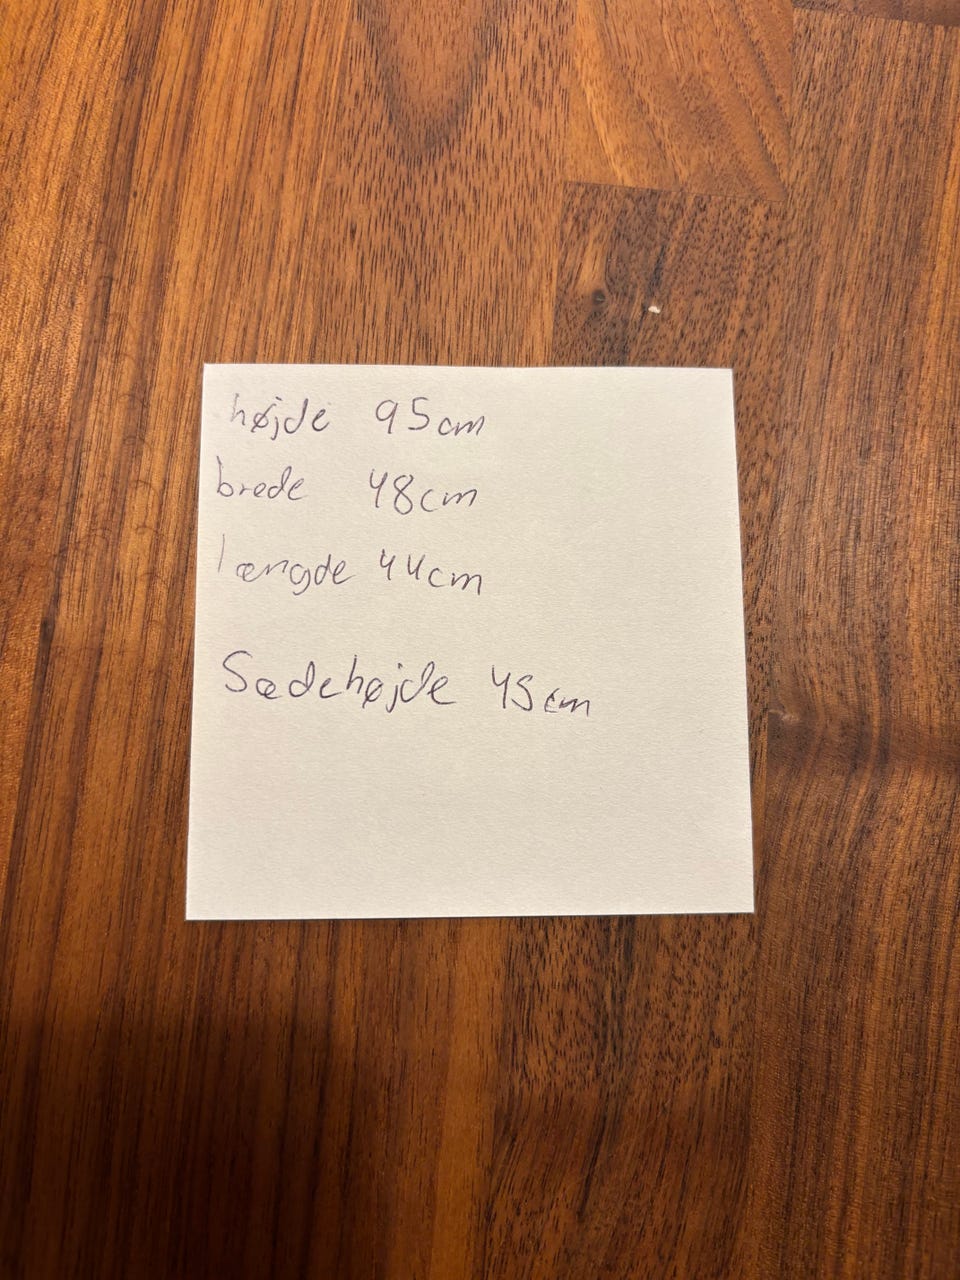 højde 95cm
brede 48cm
længde 44cm
Sædehøjde 45cm